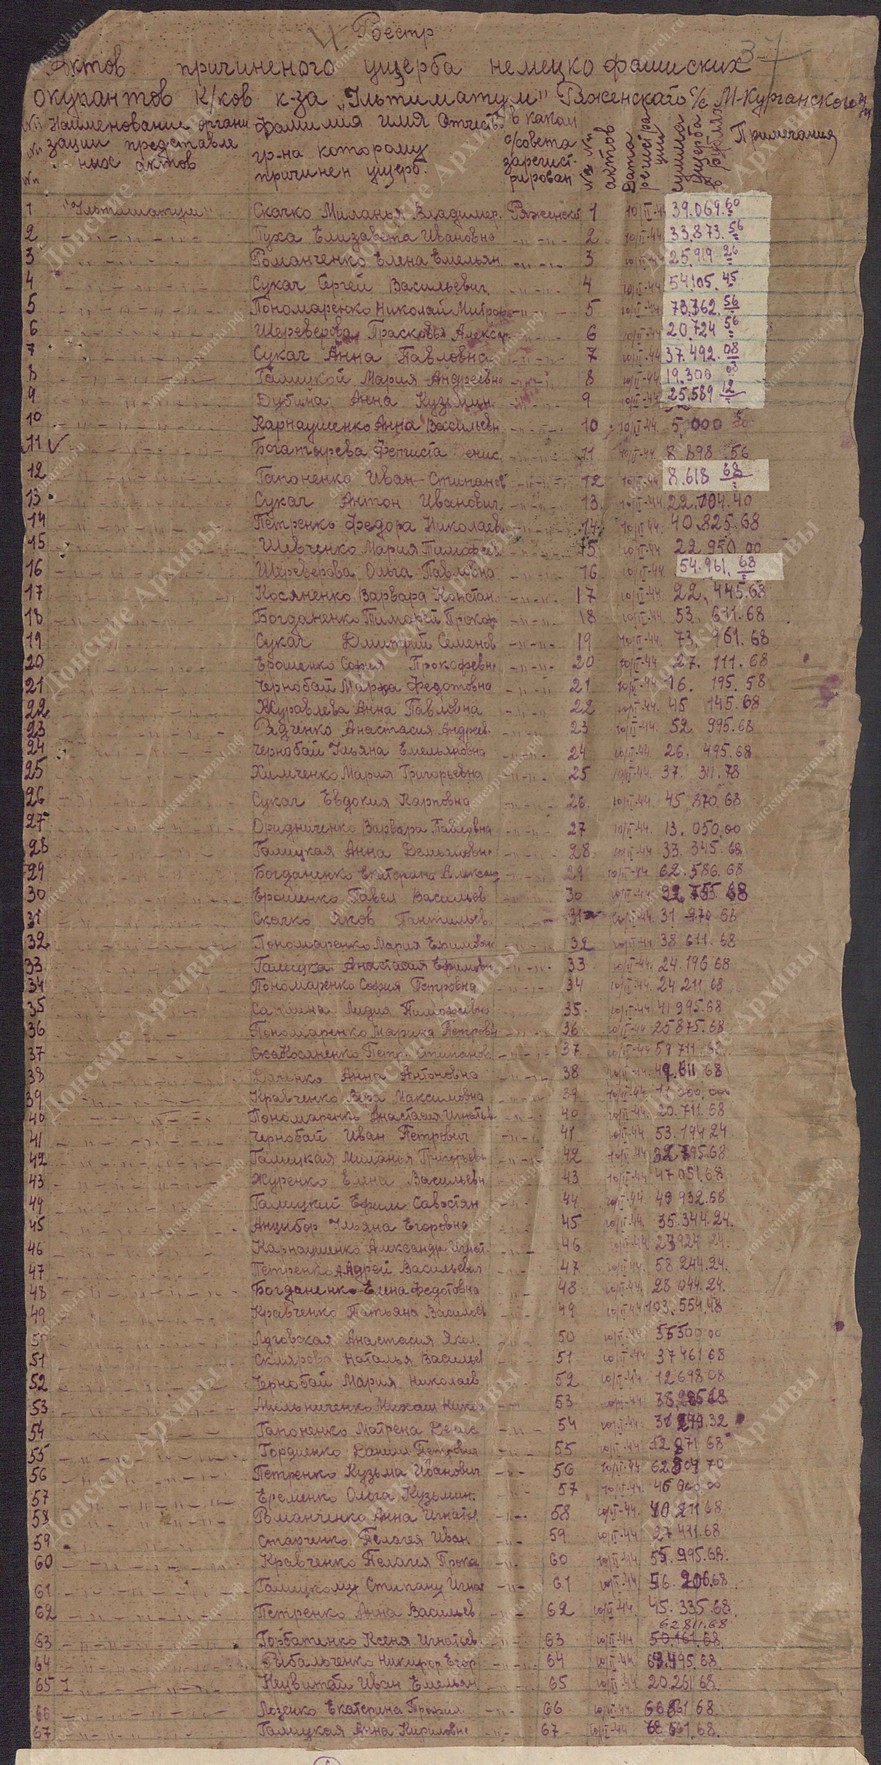 Реестр
Актов причиненого ущерба немецко фашиских
окупантов к/ков к-за "Ультиматум" Ряженскаго с/с М-Курганского
Наименование органи зации представле ных актов
фамилия имя Отчеств гр-на которому причинен ущерб.
в каком с/совета зарегист- рирован
№№ актов
Дата регистра ции
сумма ущерба в рублях
Примечания
1 "Ультиматум" Скачко Миланья Владимер. Ряженск 1 10/II-44 39.069.60
2 Пуха Елизавета Ивановна 2 10/II-44 33.873.56
3 Романченко Елена Емельян. 3 10/II-44 25.919
4 Сукач Сергей Васильевич 4 10/II-44 54105.45
5 Пономаренко Николай Митроф 5 10/II-44 73.362.56
6 Шереверова Прасковья Алекса 6 10/II-44 20.724 56
7 Сукач Анна Павловна 7 10/II-44 37.492.08
8 Галицкой Мария Андреевна 8 10/II-44 19.300
9 Дубина Анна Кузьмин. 9 10/II-44 25.589 12
10 Карнаушенко Анна Васильевн 10 10/II-44 5.000
11 Богатырева 11 10/II-44 8 898 56
12 Гапоненко Иван Стипанов 12 10/II-44 8.618 68
13 Сукач Антон Иванович 13. 10/II-44 22.704.40
14 Петренко Федора Николаев 14 10/II-44 40.825.68
15 Шевченко Мария Тимофев 15 10/II-44 22 950.00
16 Шереверова Ольга Павловна 16 10/II-44 54.961.68
17 Косяненко Варвара Констан. 17 10/II-44 22.445.68
18 Богданенко Тимофей Прокоф 18 10/II-44 53.611.68
19 Сукач Дмитрий Семенов 19 10/II-44 73.961.68
20 Ерошенко София Прокофевна 20 10/II-44 27.111.68
21 Чернобай Марфа Федотовна 21 10/II-44 16.195.58
22 Журавлева Анна Павловна 22 10/II-44 45 145.68
23 Радченко Анастасия Андреев 23 10/II-44 52 995.68
24 Чернобай Ульяна Емельяновна 24 10/II-44 26.495.68
25 Химченко Мария Григорьевна 25 10/II-44 37.311.78
26 Сукач Евдокия Карповна 26 10/II-44 45 870.68
27 Варвара Павловна 27 10/II-44 13.050.00
28 Галицкая Анна Демьяновн 28 10/II-44 33 345.68
29 Богданенко Екатерина Алекса 29 10/II-44 62.586.68
30 Ерошенко Павел Васильев 30 10/II-44 22 755 68
31 Скачко Яков Пантилев 31 10/II-44 31 970 68
32 Пономаренко Мария Ефимовн 32 10/II-44 38 611.68
33 Галицкая Анастасия Ефимовн 33 10/II-44 24.196 68
34 Пономаренко София Петровна 34 10/II-44 24 211.68
35 Лидия Тимофеевна 35. 10/II-44 41 995.68
36 Пономаренко Марина Петровн 36 10/II-44 25 875.68
37 Косяненко Петр Стипанов 37 10/II-44
38 Анна Антоновна 38 10/II-44 49.611 68
39 Кравченко Вера Максимовна 39 10/II-44
40 Пономаренко Анастасия Игнатьев 40 10/II-44 20.711.68
41 Чернобай Иван Петрович 41 10/II-44 53.194 24
42 Галицкая Миланья Григорьев 42 10/II-44
43 Журенко Елена Васильевн 43 10/II-44 47 051.68
44 Галицкий Ефим Савостян 44 10/II-44 49 932.68
45 Анцибор Ульяна Егоровна 45 10/II-44 35.344.24.
46 Карнаушенко Александр Игнат. 46 10/II-44
47 Петренко Андрей Васильевич 47 10/II-44 58 244.24.
48 Богданенко Елена Федотовна 48 10/II-44 28 044.24.
49 Кравченко Татьяна Василев 49 10/II-44 103.554.48
50 Анастасия Яков. 50 10/II-44 55500.00
51 Склярова Наталья Василев 51 10/II-44 37461 68
52 Чернобай Мария Николаев 52 10/II-44 12698 08
53 Мельниченко 53 10/II-44
54 Гапоненко Матрена Денис 54 10/II-44
55 Гордиенко Данил Петрович 55 10/II-44 32 871 68
56 Петренко Кузьма Иванович 56 10/II-44
57 Еременко Ольга Кузьмин. 57 10/II-44 46 900.00
58 Романченко Анна Игнатов 58 10/II-44
59 Пелагея Иван 59 10/II-44 27 411.68
60 Кравченко Пелагея Прока 60 10/II-44 55.995.68.
61 Галицкому Стипану Игна 61 10/II-44 56.206.68
62 Петренко Анна Васильев 62 10/II-44 45.335 68.
62 811.68
63 Горбатенко Ксеня Игнатьев 63 10/II-44 50,161,68
64 Рыбальченко Никифор Егор 64 10/II-44
65 Неувитай Иван Емельян 65 10/II-44 20 261 68.
66 Лозенко Екатерина 66 10/II-44
67 Галицкая Анна Кириловна 67 10/II-44